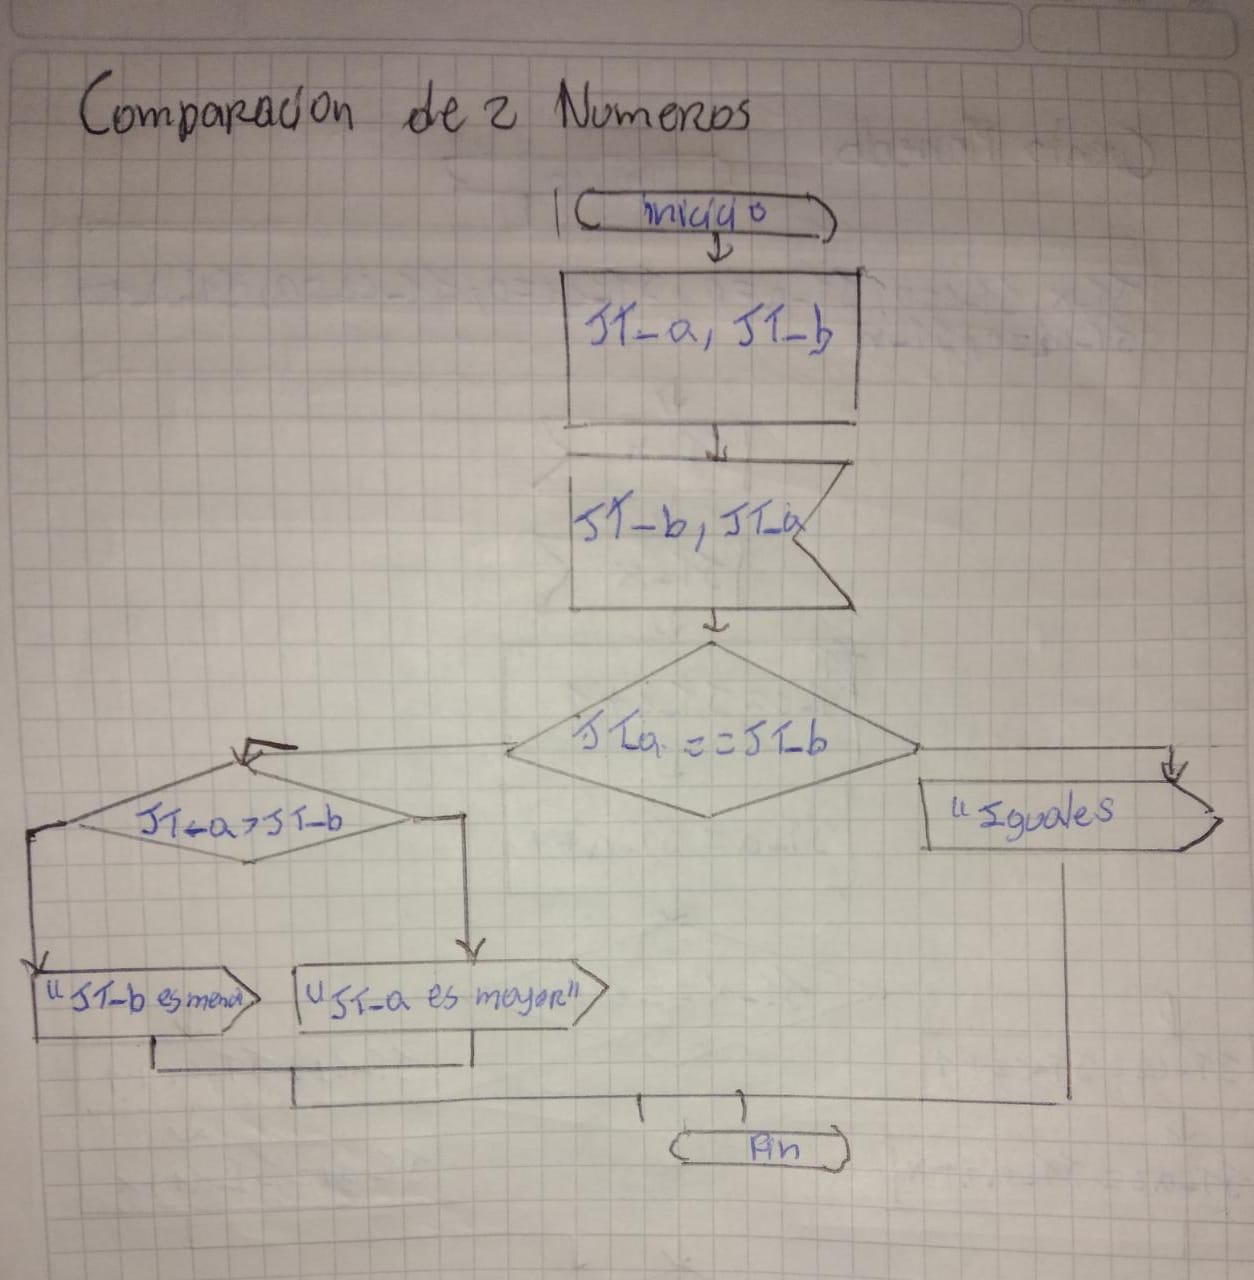 Comparacion de 2 Numeros
inicio
JT-a, JT-b
JT-b, JT-a
JT-a == JT-b
JT-a > JT-b
"Iguales
"JT-b es menor
"JT-a es mayor"
Fin